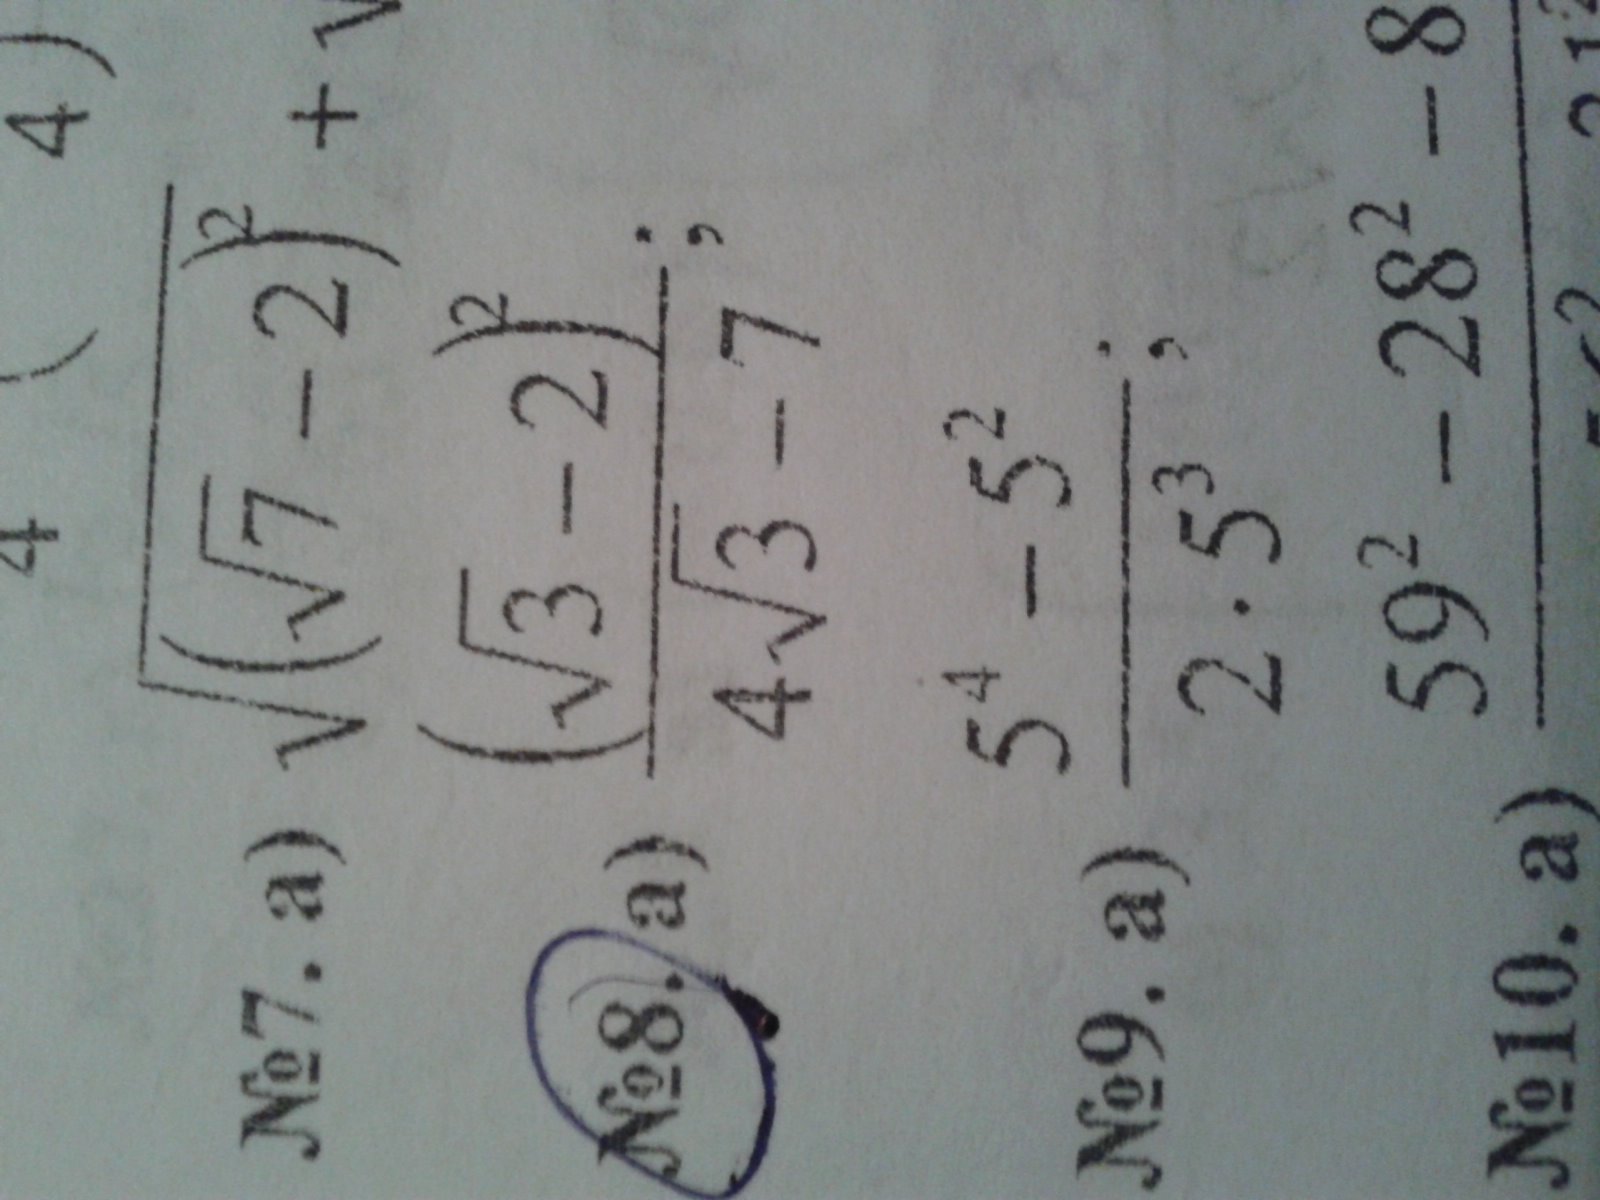 4 ( 4)
№7. а) √(√7 − 2)² + √
№8. а) (√3 − 2)²
4√3 − 7 ;
№9. а) 5⁴ − 5²
2 · 5³ ;
№10. а) 59² − 28² − 8